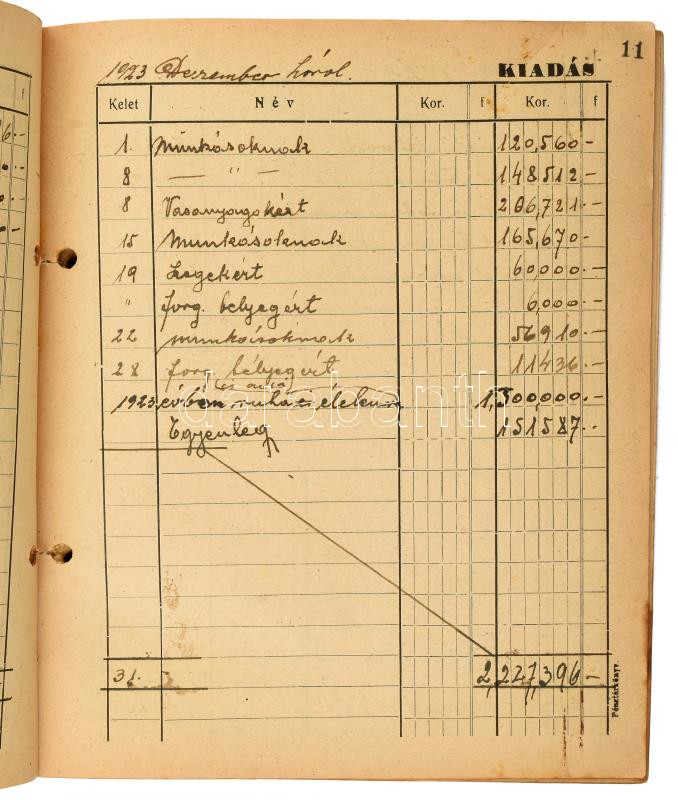 11
1923 December hóról.
KIADÁS
Kelet Név Kor. f Kor. f
1. Munkásoknak 120,560.-
8 — " — 148512.-
8 Vasanyagokért 206,721.-
15 Munkásoknak 165,670.-
19 Szegekért 60,000.-
" forg. bélyegért 6,000.-
22 munkásoknak 56910.-
28 forg. bélyegért 11436.-
1923 évben ruha élelem 1,300,000.-
Egyenleg 151587.-
31. 2,227,396.-
Pénztárkönyv.
darabanth